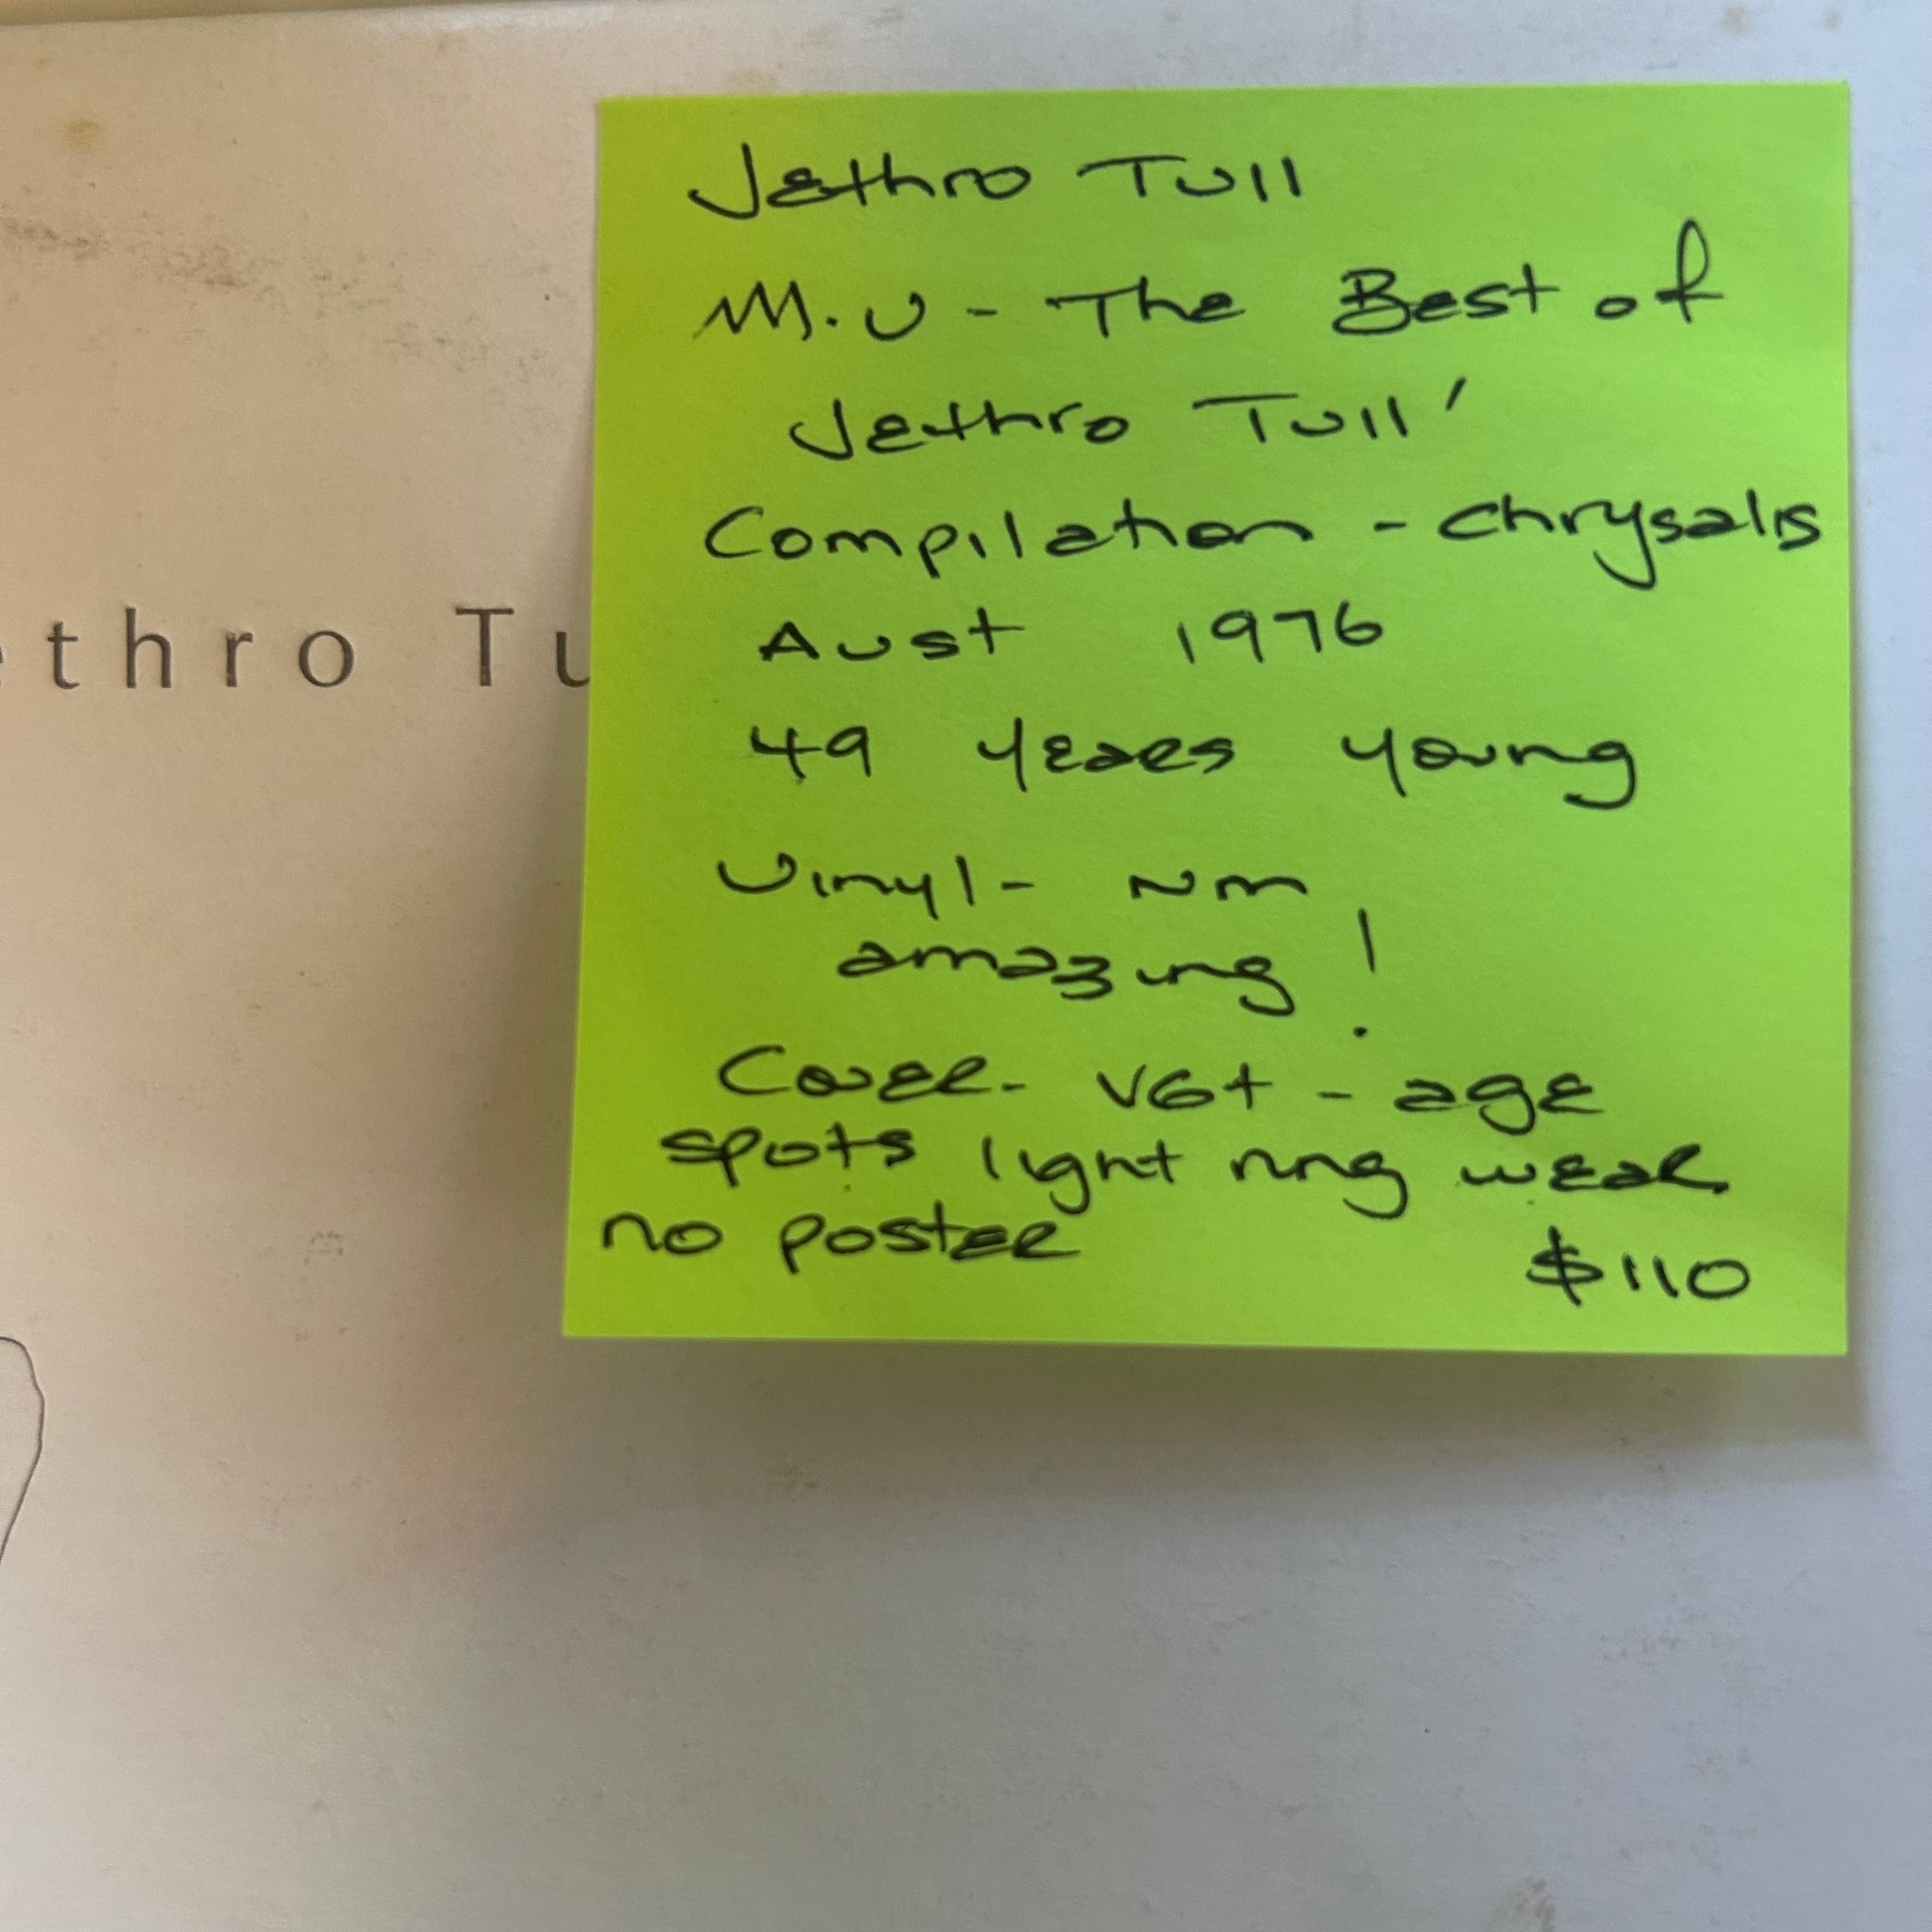 Jethro Tull
M.U - The Best of
Jethro Tull'
Compilation - Chrysalis
Aust 1976
49 years young
Vinyl - NM
amazing!
Cover - VG+ - age
spots light ring wear
no poster
$110
ethro Tu